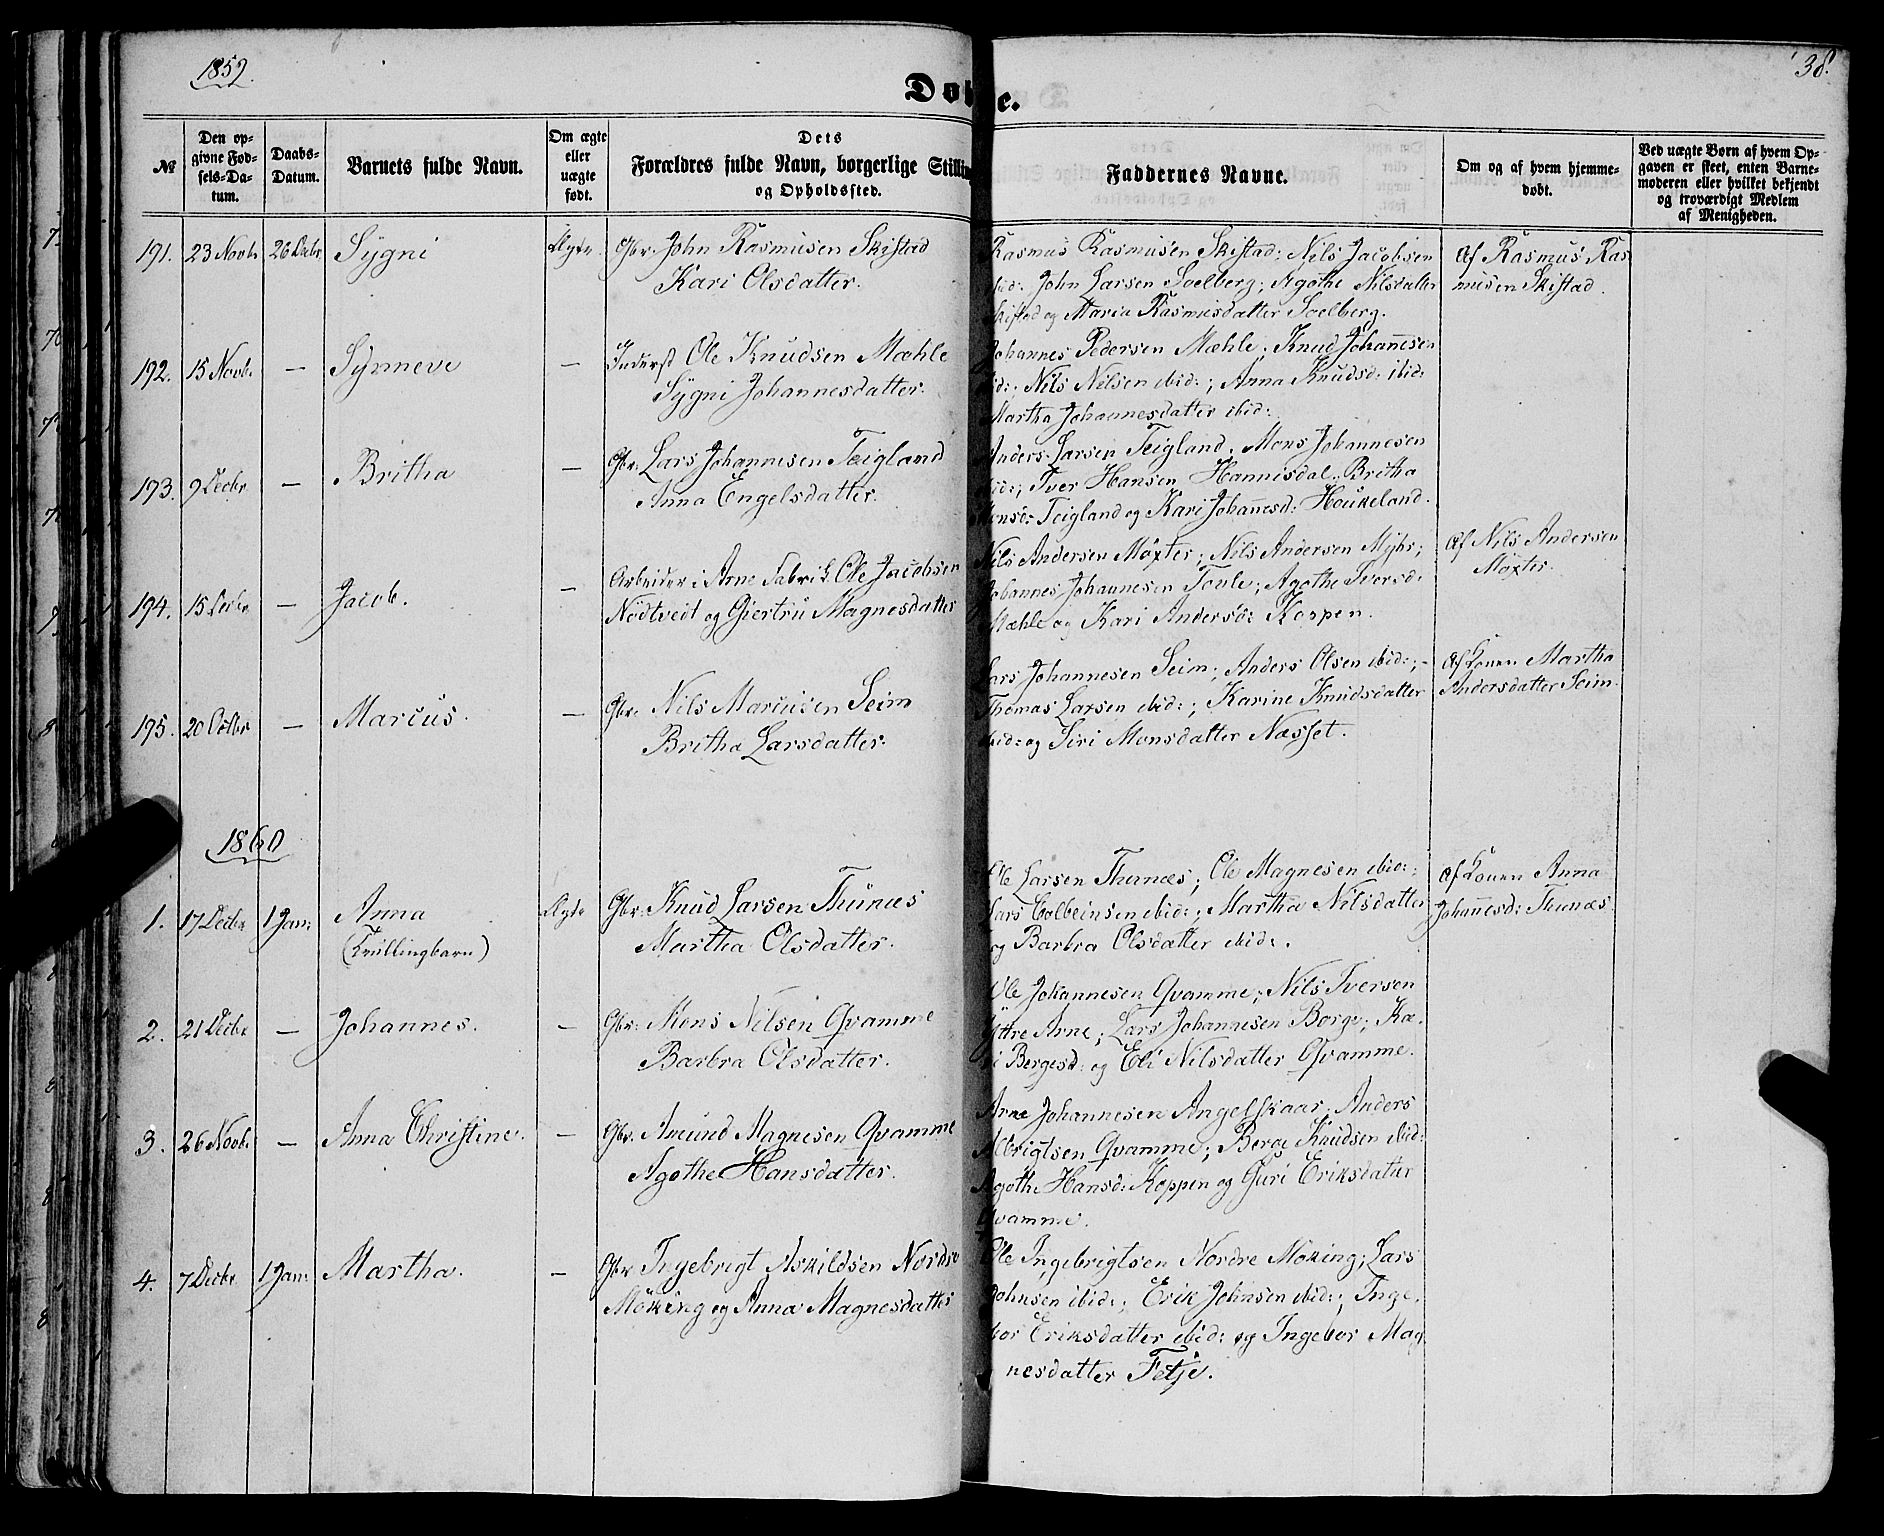 1859.
38.
Døbte.
№
Den opgivne Fødsels-Datum.
Daabs-Datum.
Barnets fulde Navn.
Om ægte eller uægte født.
Dets Forældres fulde Navn, borgerlige Stilling og Opholdssted.
Faddernes Navne.
Om og af hvem hjemmedøbt.
Ved uægte Børn af hvem Opgaven er skeet, enten Barnemoderen eller hvilket bekjendt og troværdigt Medlem af Menigheden.
191. 23 Novbr 26 Debr. Sÿgni Ægte Gbr. John Rasmusen Skistad
Kari Olsdatter.
Rasmus Rasmusen Skistad; Nils Jacobsen
ibid: John Larsen Soelberg; Agothe Nilsdatter
Skistad og Maria Rasmusdatter Soelberg.
Af Rasmus Ras
musen Skistad.
192. 15 Novb. — Synneve — Inderst Ole Knudsen Mæhle
Sÿgni Johannesdatter.
Johannes Pedersen Mæhle; Knud Johannesen
ibid:; Nils Nilsen ibid:; Anna Knudsd: ibid:
Martha Johannesdatter ibid:
193. 9 Decbr — Britha — Gbr. Lars Johannesen Teigland
Anna Engelsdatter.
Anders Larsen Teigland. Mons Johannesen
ibid:; Iver Hansen Hannisdal; Britha
Monsd: Teigland og Kari Johannesd: Houkeland.
194. 15 Decbr — Jacob. — Arbeider i Arne Fabrik Ole Jacobsen
Nödtvedt og Giertru Magnesdatter
Nils Andersen Möxter; Nils Andersen Myhr;
Johannes Johannesen Toule; Agothe Iversd:
Mæhle og Kari Andersd: Koppen.
Af Nils Andersen
Möxter.
195. 20 Octbr — Marcus. — Gbr. Nils Marcusen Seim
Britha Larsdatter.
Lars Johannesen Seim; Anders Olsen ibid:;
Thomas Larsen ibid:; Karine Knudsdatter
ibid: og Siri Monsdatter Næsset.
Af Konen Martha
Andersdatter Seim.
1860
1. 17 Decbr 1 Jan: Anna Ægte Gbr. Knud Larsen Thunæs
(Trillingbarn) Martha Olsdatter.
Ole Larsen Thunæs; Ole Magnesen ibid:;
Lars Colbeinsen ibid:; Martha Nilsdatter
og Barbra Olsdatter ibid:.
Af Konen Anna
Johannesd: Thunæs.
2. 21 Decbr — Johannes. — Gbr. Mons Nilsen Qvamme
Barbra Olsdatter.
Ole Johannesen Qvamme; Nils Iversen
Yttre Arne; Lars Johannesen Borge; Ka-
ri Bergesd: og Eli Nilsdatter Qvamme.
3. 26 Novb. — Anna Christine. — Gbr. Amund Magnesen Qvamme
Agothe Hansdatter.
Arne Johannesen Angelskaar; Anders
Albrigtsen Qvamme; Berge Knudsen ibid:
Agothe Hansd: Koppen og Guri Eriksdatter
Qvamme.
4. 7 Decbr. 1 Jan: Martha. — Gbr Ingebrigt Askildsen Nordre
Möking og Anna Magnesdatter
Ole Ingebrigtsen Nordre Möking; Lars
Johnsen ibid:; Erik Johnsen ibid:; Inge-
bor Eriksdatter ibid: og Ingebor Mag
nesdatter Fetje.